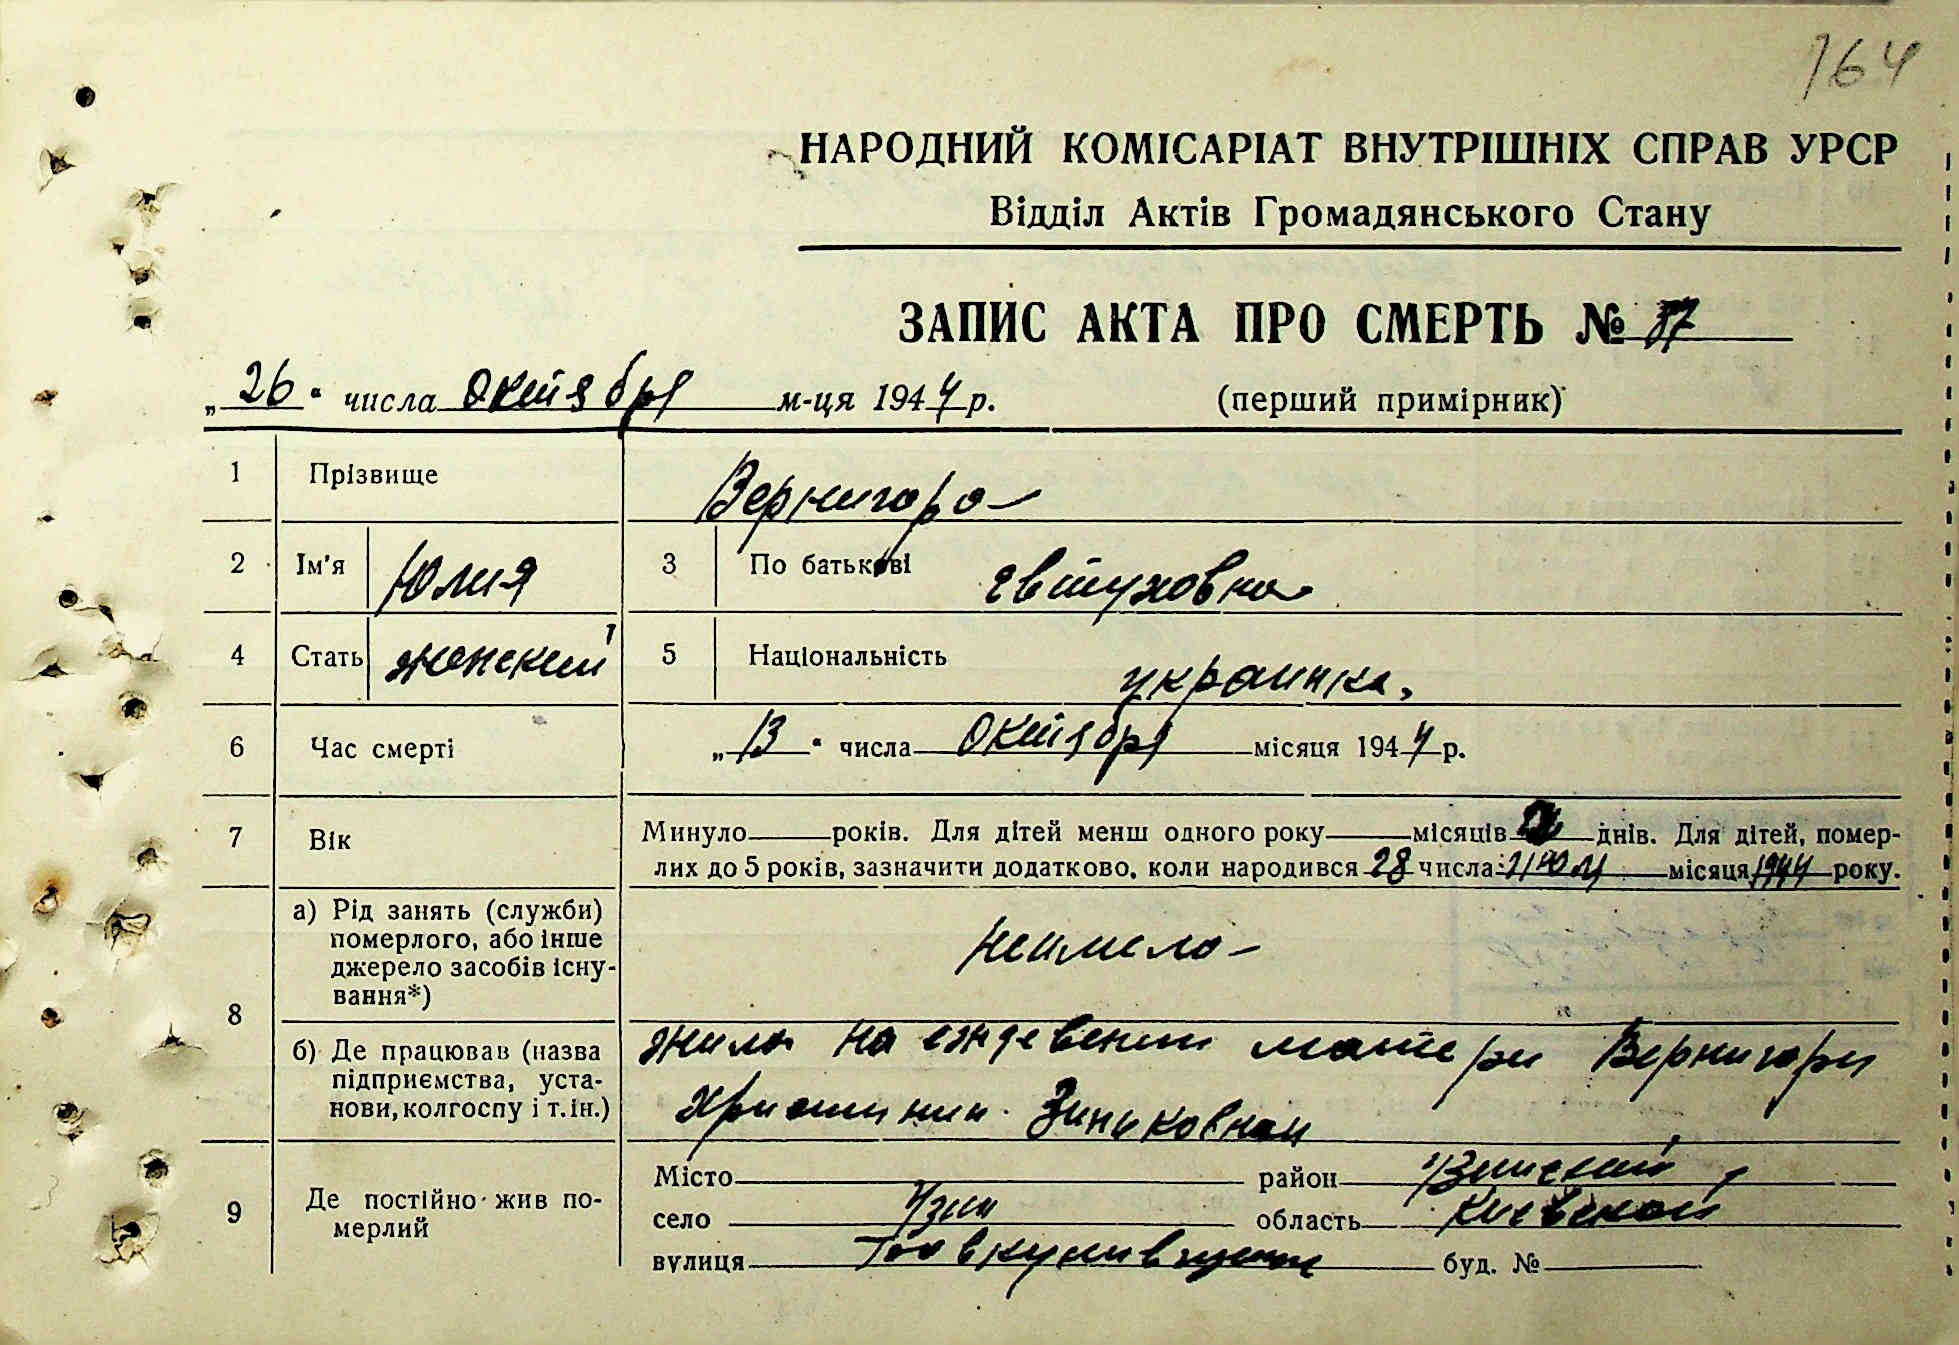 164
НАРОДНИЙ КОМІСАРІАТ ВНУТРІШНІХ СПРАВ УРСР
Відділ Актів Громадянського Стану
ЗАПИС АКТА ПРО СМЕРТЬ № 37
„ 26 “ числа Октября м-ця 1944 р. (перший примірник)
1 Прізвище Вернигора
2 Ім'я Юлия 3 По батькові Евтуховна
4 Стать женский 5 Національність украинка.
6 Час смерті „ 13 “ числа Октября місяця 1944 р.
7 Вік Минуло років. Для дітей менш одного року місяців днів. Для дітей, помер-
лих до 5 років, зазначити додатково, коли народився 28 числа місяця 1944 року.
8 а) Рід занять (служби) померлого, або інше джерело засобів існу-вання*) неимела
б) Де працював (назва підприємства, уста-нови, колгоспу і т. ін.) жила на ехдевении матери Вернигори
Христинии Зиньковной
9 Де постійно жив по-мерлий Місто район Узинский
село Узин область Киевской
вулиця буд. №